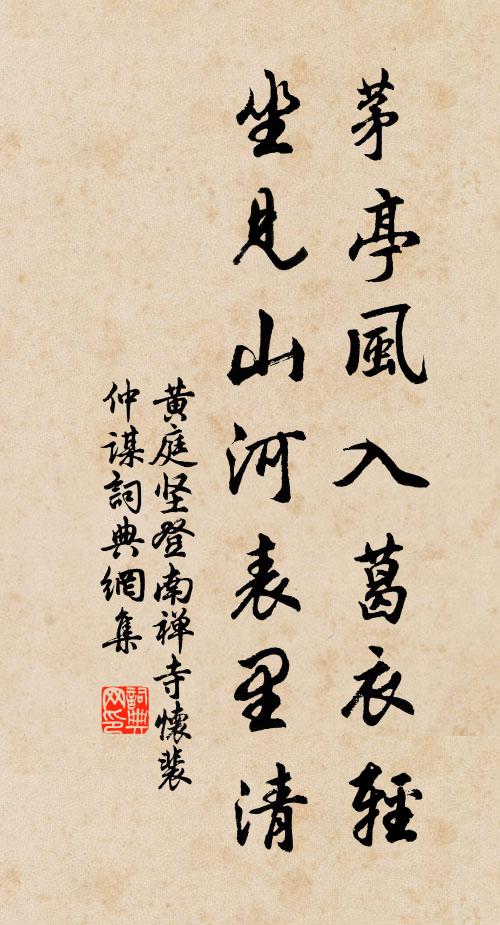 茅亭風入葛衣輕
坐見山河表里清
黄庭坚登南禅寺懷裴
仲谋詞典網集
詞典
网印